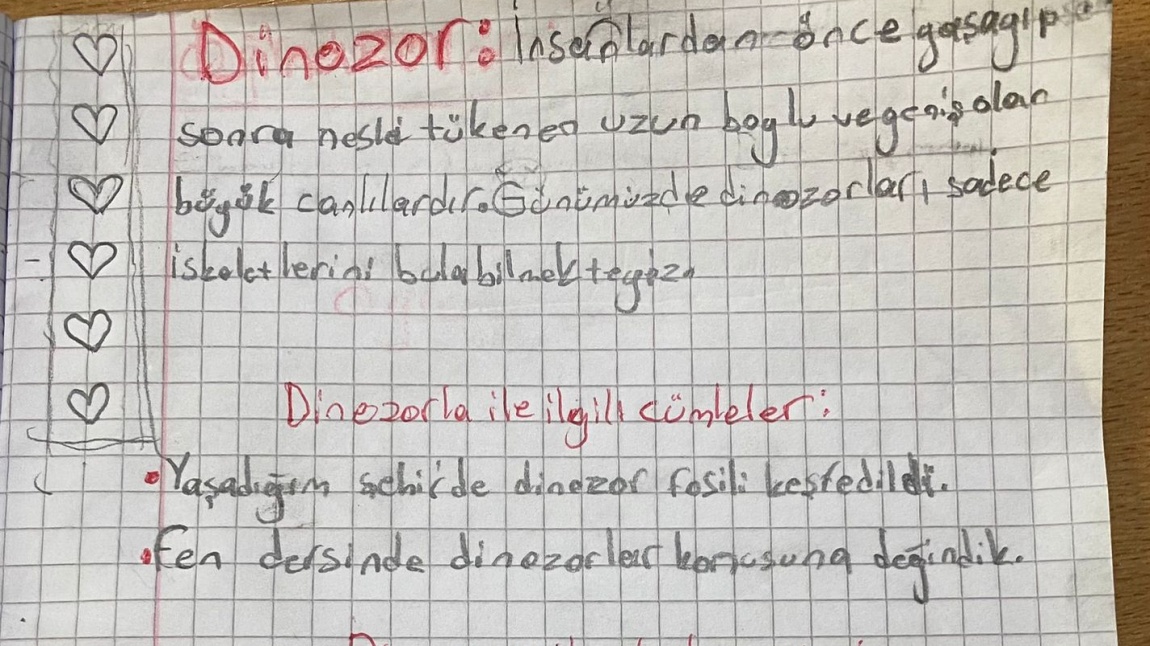 Dinozor: İnsanlardan önce yaşayıp
sonra nesli tükenen uzun boylu ve geniş olan
büyük canlılardır. Günümüzde dinozorları sadece
iskeletlerini bulabilmekteyiz.
Dinozorla ile ilgili cümleler:
• Yaşadığım şehirde dinozor fosili keşfedildi.
• Fen dersinde dinozorlar konusuna değindik.